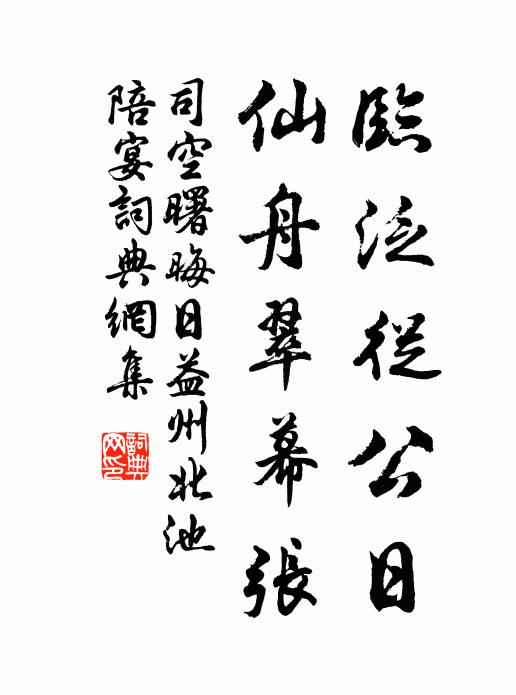 臨泛從公日
仙舟翠幕張
司空曙晦日益州北池
陪宴詞典網集
詞典
网印